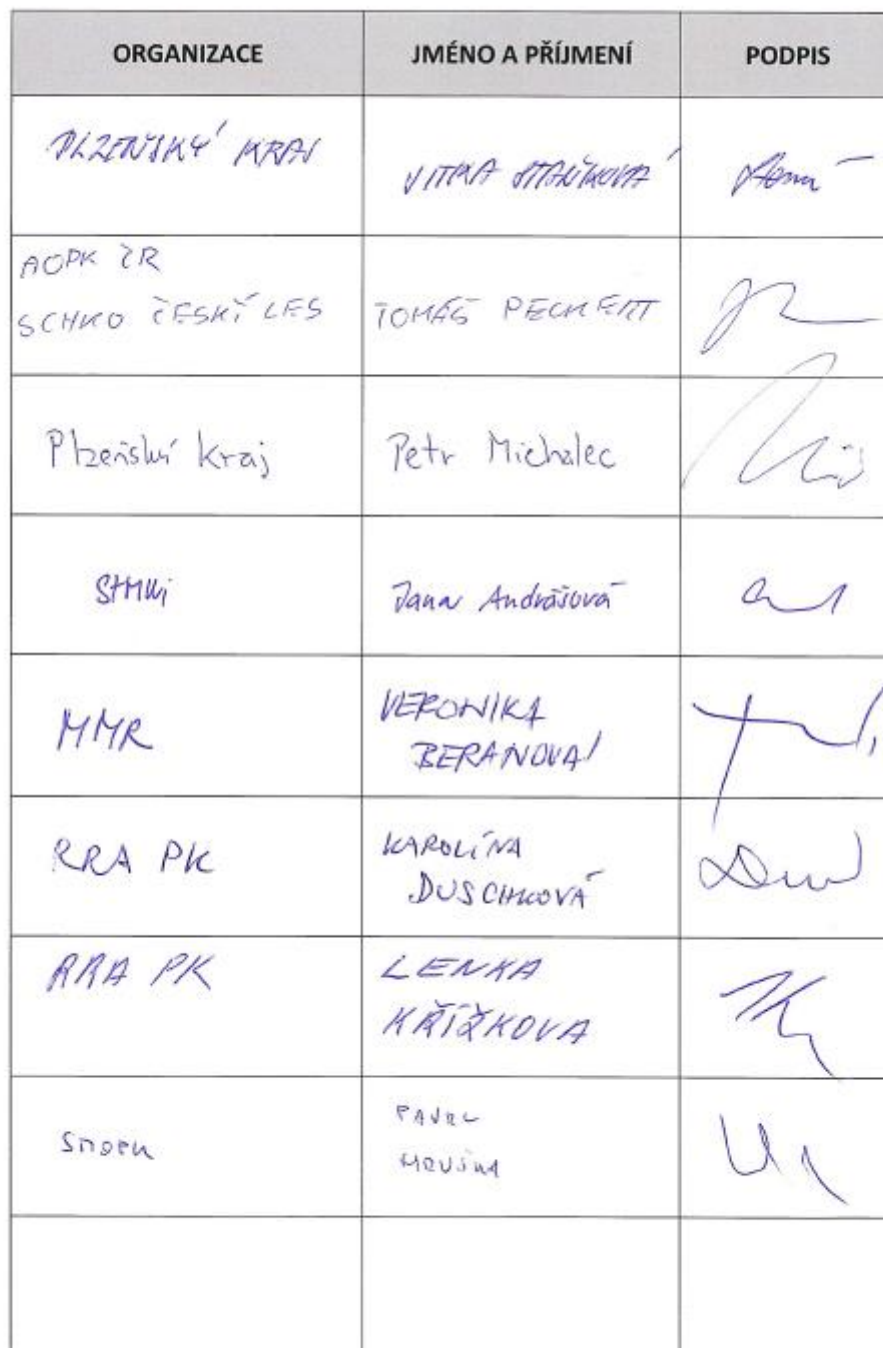 ORGANIZACE JMÉNO A PŘÍJMENÍ PODPIS
PLZEŇSKÝ KRAJ
AOPK ČR
SCHKO ČESKÝ LES TOMÁŠ
Plzeňský kraj Petr Michalec
Jana Andrášová
MMR VERONIKA
BERANOVÁ
RRA PK KAROLÍNA
DUSCHKOVÁ
RRA PK LENKA
KŘÍŽKOVA
PAVEL
HRUŠKA